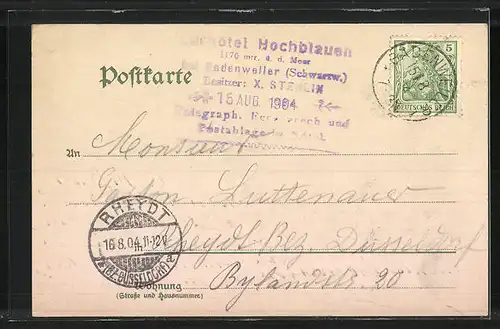 Kurhotel Hochblauen
1170 mtr. ü. d. Meer
bei Badenweiler (Schwarzw.)
Besitzer: X. STERLIN
15 AUG. 1904
Telegraph. Fernsprech und
Postablage
Postkarte
5
DEUTSCHES REICH
BADENW
An
Monsieur
Gaston Luttenauer
Rheydt Bez. Düsseldorf
Bylandtstr. 20
RHEYDT
16.8.04.11-12V.
* (BZ. DÜSSELDORF) a
Wohnung
(Straße und Hausnummer)